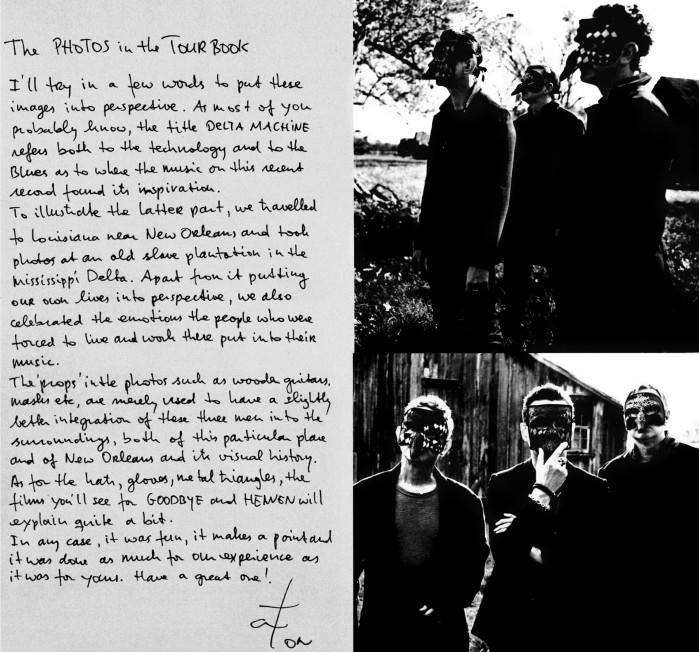 The PHOTOS in the TOUR BOOK
I'll try in a few words to put these
images into perspective. As most of you
probably know, the title DELTA MACHINE
refers both to the technology and to the
Blues as to where the music on this recent
record found its inspiration.
To illustrate the latter part, we travelled
to Louisiana near New Orleans and took
photos at an old slave plantation in the
Mississippi Delta. Apart from it putting
our own lives into perspective, we also
celebrated the emotions the people who were
forced to live and work there put into their
music.
The 'props' in the photos such as wooden guitars,
masks etc, are merely used to have a slightly
better integration of these three men into the
surroundings, both of this particular place
and of New Orleans and its visual history.
As for the hats, gloves, metal triangles, the
films you'll see for GOODBYE and HEAVEN will
explain quite a bit.
In any case, it was fun, it makes a point and
it was done as much for our experience as
it was for yours. Have a great one!